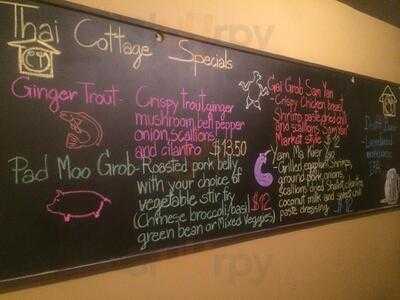 Thai Cottage Specials
Ginger Trout - Crispy trout, ginger
mushroom, bell pepper
onion, scallions
and cilantro $13.50
Pad Moo Grob - Roasted pork belly
with your choice of
vegetable stir fry
(Chinese broccoli/basil $12
green bean or Mixed Veggies)
Gai Grob Sam Yan
- Crispy Chicken breast
Shrimp paste dried chili
and scallions Sam Yan
Market style $12
Yam Ma Kuer
- Grilled eggplant, Shrimp,
ground pork, onions,
scallions dried Shrimp, cilantro
coconut milk and
paste dressing